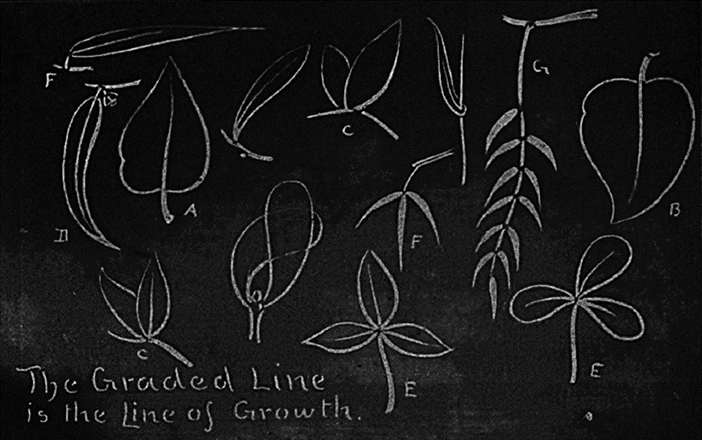 F
G
C
A
B
D
F
C
E
E
The Graded Line
is the Line of Growth.